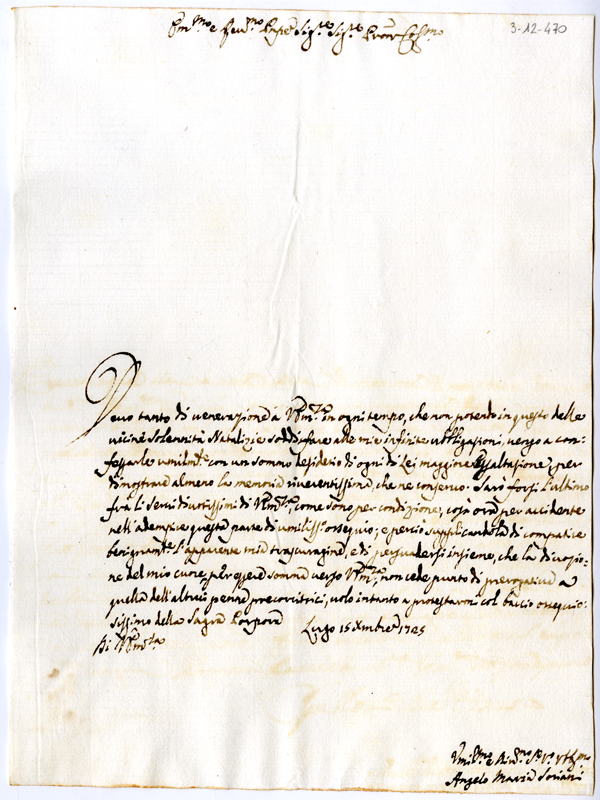 3-12-470
Em.mo e Rev.mo Prpe Sig.re Sig.re Pron Col.mo
Devo tanto di venerazione à V. Em.za in ogni tempo, che non potendo in questo delle
vicine Solennità Natalizie soddisfare alle mie infinite obbligazioni, vengo a con-
fessarle umilmte con un sommo desiderio di ogni di Lei maggiore Essaltazione, per
dimostrar almeno la memoria riverentissima, che ne conservo. Sarò forsi l'ultimo
frà li Servi divotissimi di V. Em.za, come sono per condizione, così ora per accidente
nell'adempire questa parte di umiliss.o ossequio; e perciò supplicandola di compatire
benignamte l'apparente mia trascuragine, e di persuadersi insieme, che la divozio-
ne del mio cuore per essere somma verso V. Em.za, non cede punto di prerogativa a
quella dell'altrui penne precorritrici, volo intanto a protestarmi col baccio ossequio-
sissimo della Sagra Porpora Lugo 15 Xmbre 1725
Di V. Em.za
Umil.mo e Div.mo Se.re Obbl.mo
Angelo Maria Soriani